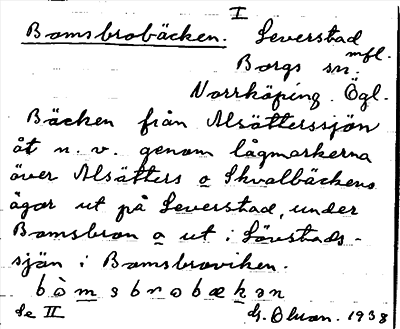 I
Bomsbrobäcken. Leverstad
mfl.
Borgs sn.
Norrköping. Ögl.
Bäcken från Alsätterssjön
åt n. v. genom lågmarkerna
över Alsätters o Skvalbäckens
ägor ut på Leverstad, under
Bomsbron o ut i Lövstads-
sjön i Bomsbroviken.
bòmsbrobækən
Se II G. Olson. 1938